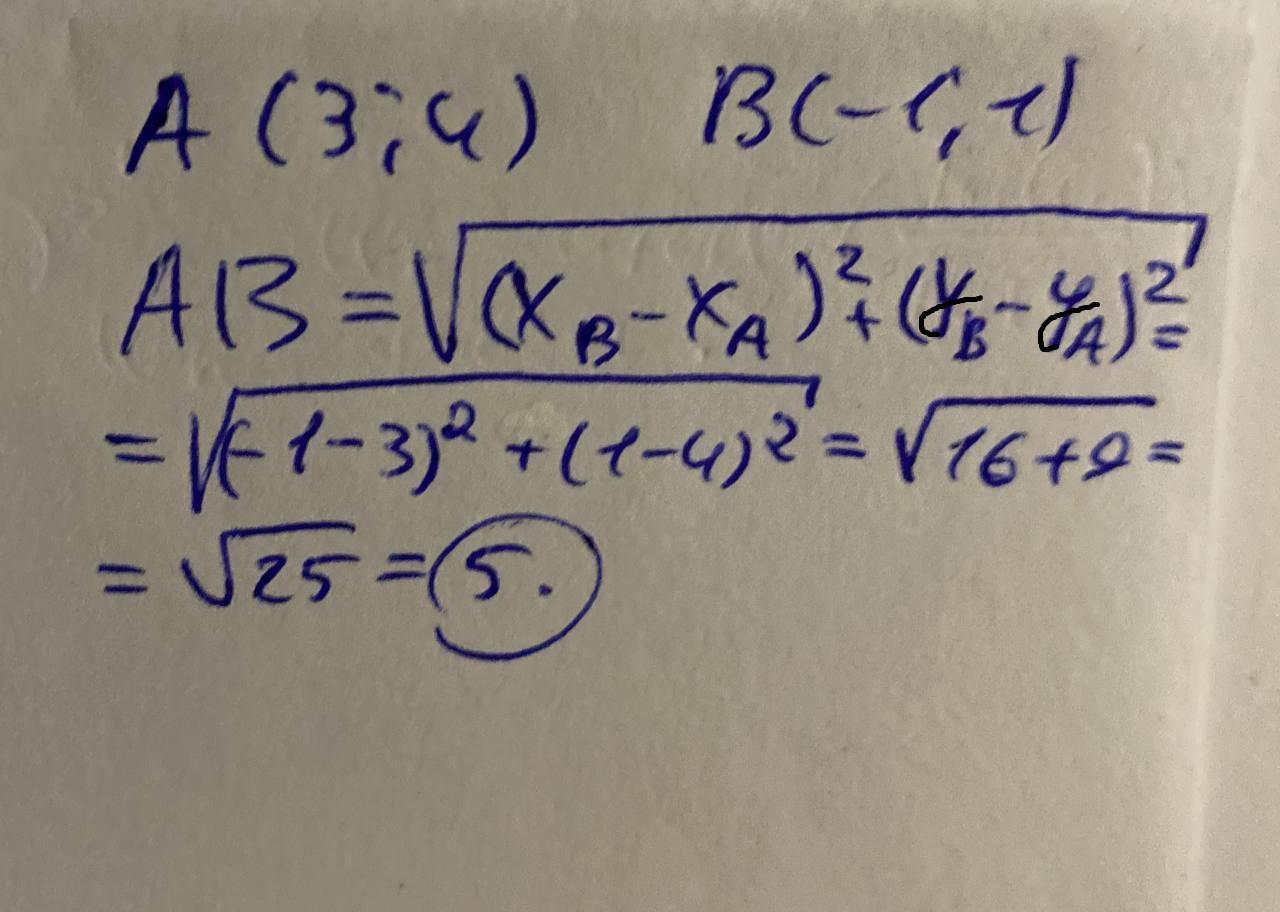 A (3; 4) B(-1, 1)
AB = √(x_B - x_A)² + (y_B - y_A)² =
= √(-1-3)² + (1-4)² = √16+9 =
= √25 = 5.